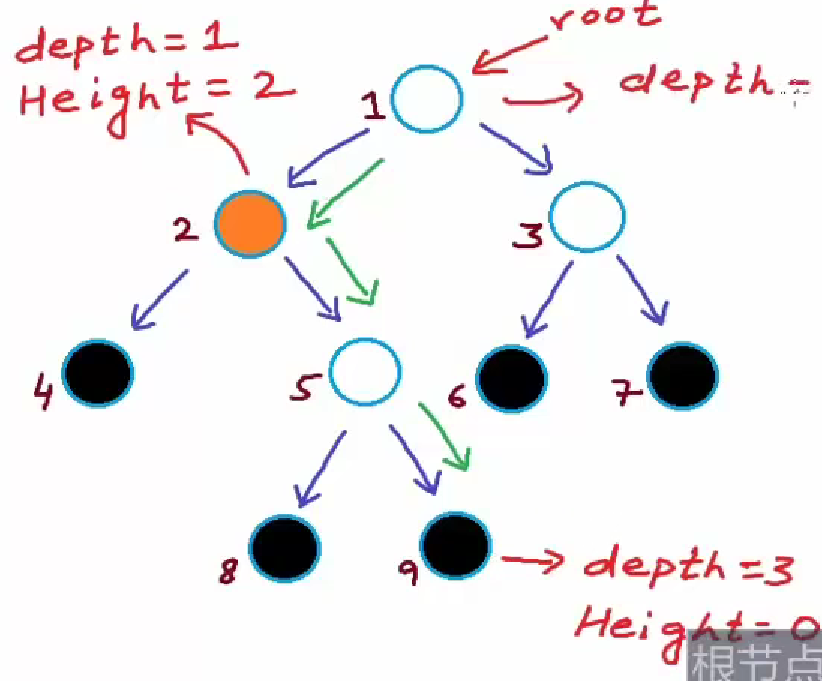 root
depth = 1
Height = 2
depth =
1
2
3
4
5
6
7
8
9
depth = 3
Height = 0
根节点